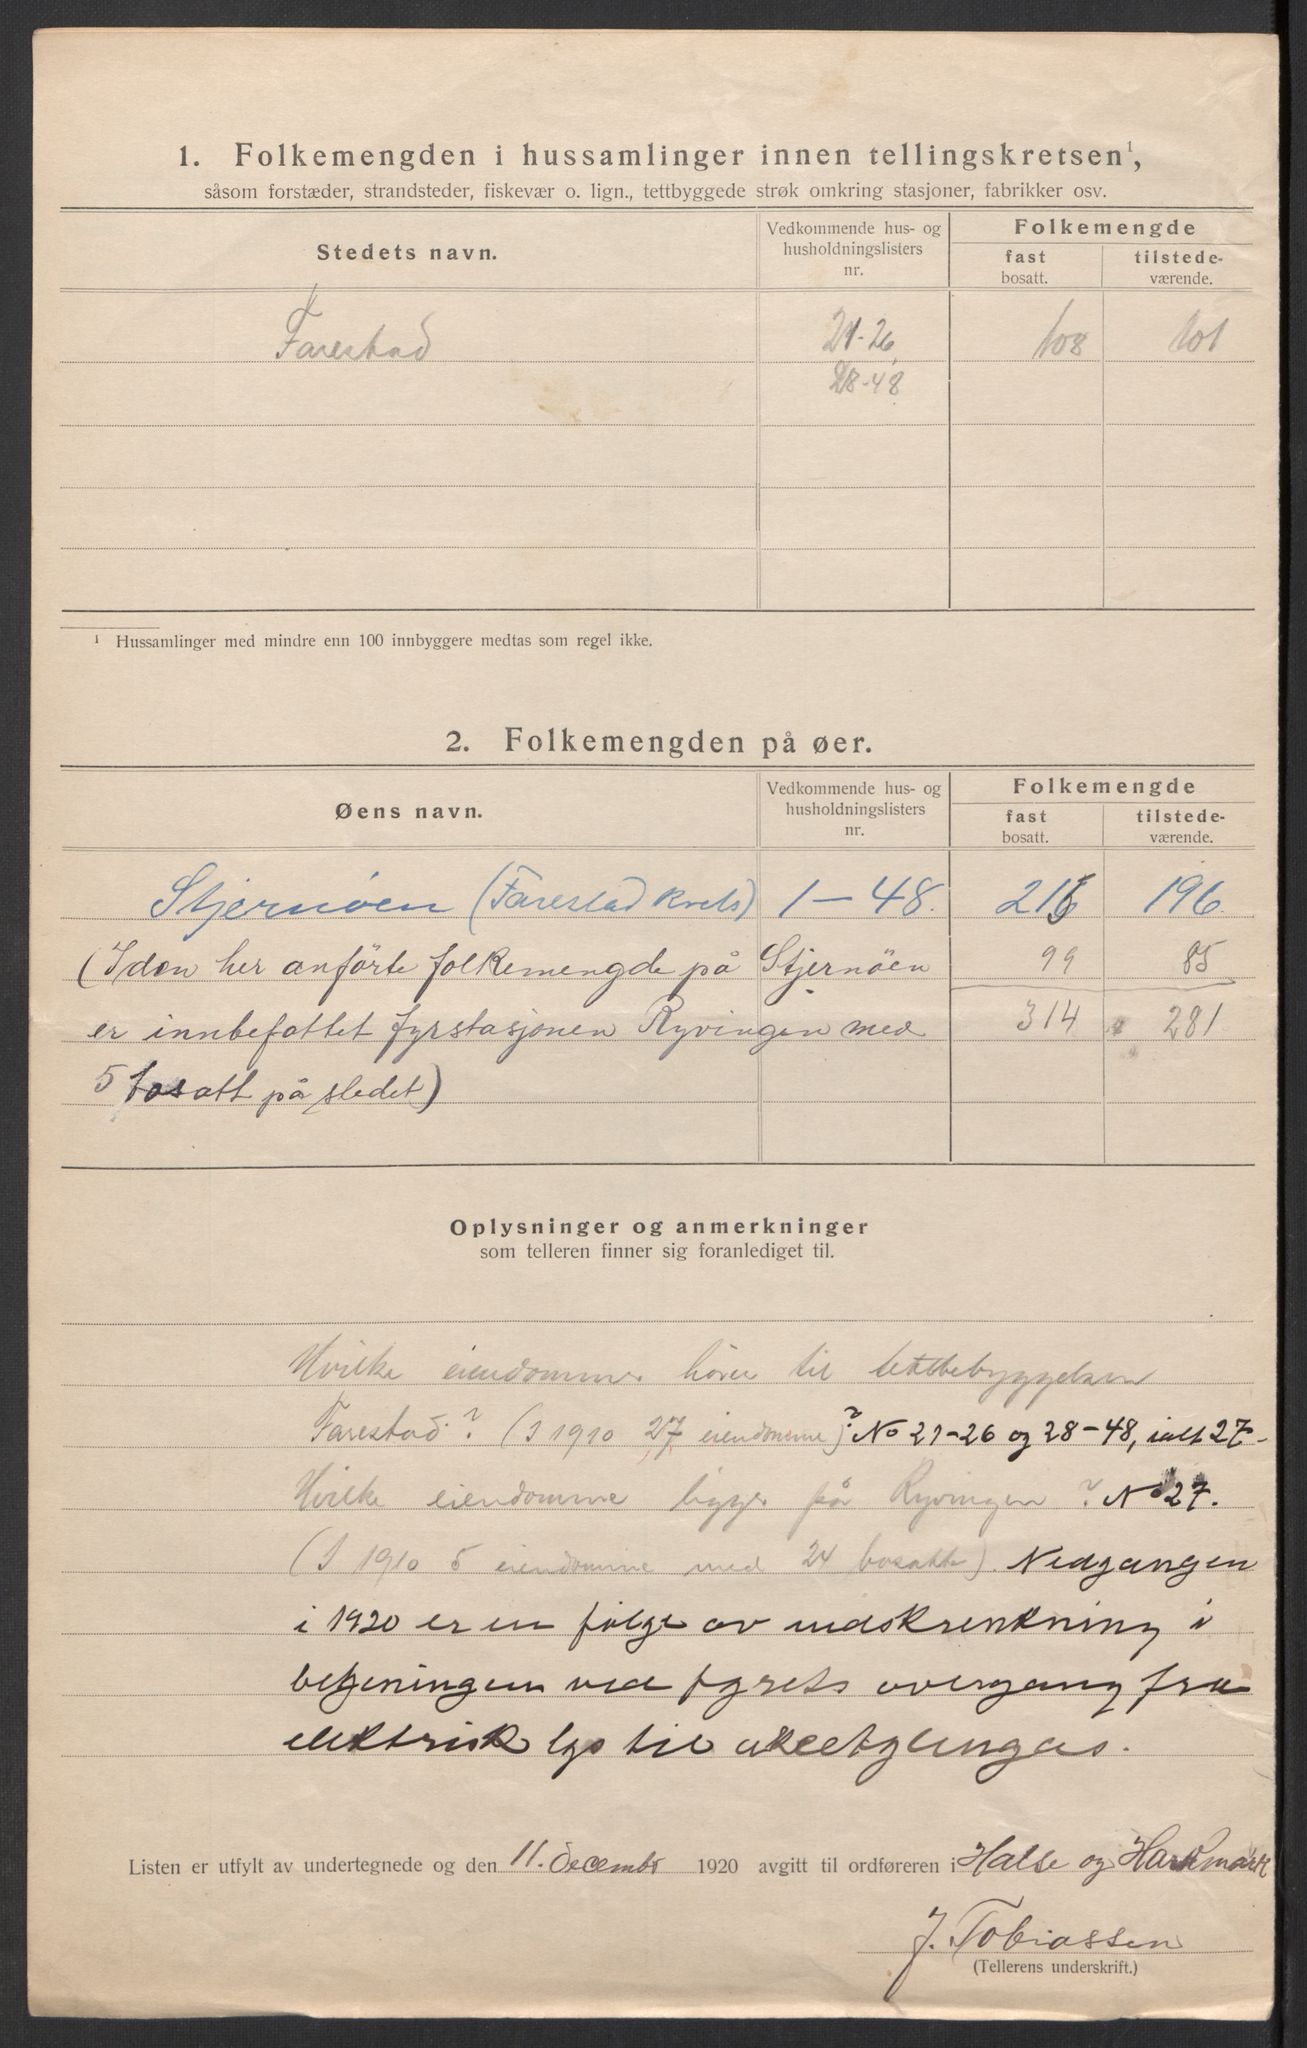 1. Folkemengden i hussamlinger innen tellingskretsen¹,
såsom forstæder, strandsteder, fiskevær o. lign., tettbyggede strøk omkring stasjoner, fabrikker osv.
Stedets navn.
Vedkommende hus- og
husholdningslisters
nr.
Folkemengde
fast
bosatt.
tilstede-
værende.
Farestad 21-26 108 101
28-48
¹ Hussamlinger med mindre enn 100 innbyggere medtas som regel ikke.
2. Folkemengden på øer.
Øens navn.
Vedkommende hus- og
husholdningslisters
nr.
Folkemengde
fast
bosatt.
tilstede-
værende.
Stjernöen (Farestad krets) 1-48. 215 196.
(I den her anförte folkemengde på Stjernöen 99 85
er innbefattet fyrstasjonen Ryvingen med 314 281
5 bosatt på stedet)
Oplysninger og anmerkninger
som telleren finner sig foranlediget til.
Hvilke eiendomme hører til tettbebyggelsen
Farestad? (I 1910 27 eiendomme)? No 21-26 og 28-48, ialt 27-
Hvilke eiendomme ligger på Ryvingen? No 27.
(I 1910 5 eiendomme med 24 bosatte). Nedgangen
i 1920 er en følge av indskrenkning i
betjeningen ved fyrets overgang fra
elektrisk lys til acetylengas.
Listen er utfylt av undertegnede og den 11. decembr 1920 avgitt til ordføreren i Halse og Harkmark
J. Tobiassen
(Tellerens underskrift.)